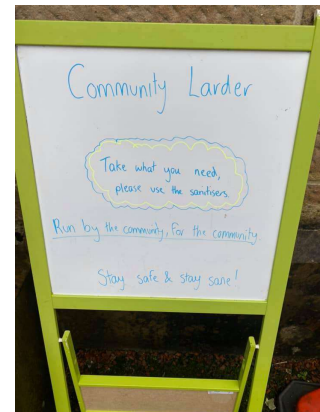 Community Larder
Take what you need,
please use the sanitisers.
Run by the community, For the community
Stay safe & stay sane!